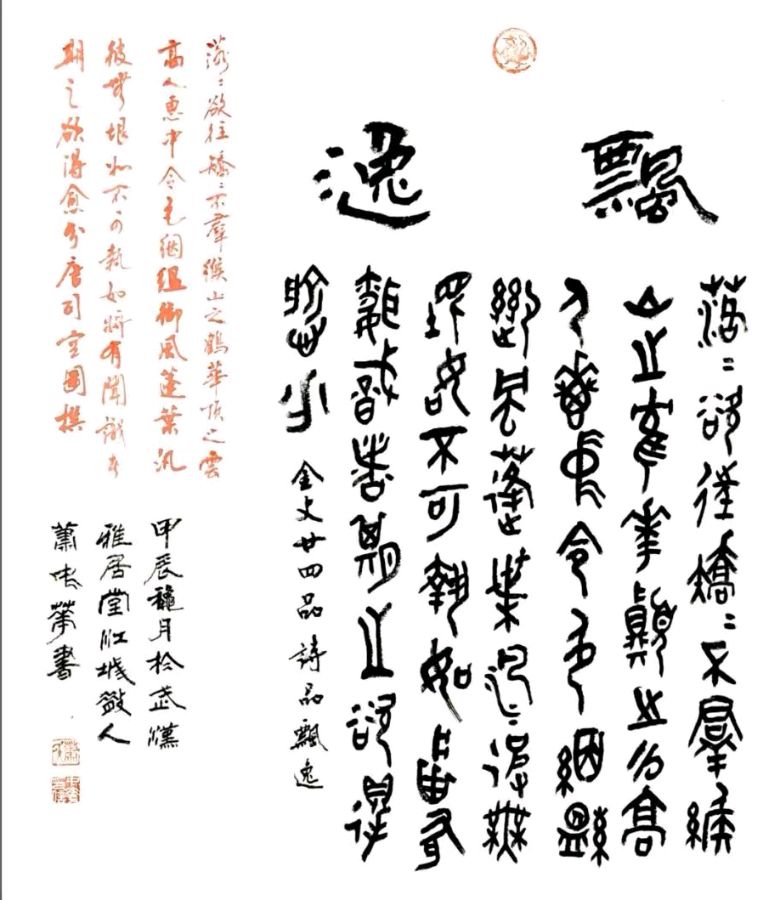 飄逸
落〻欲往矯〻不羣緱
山之鶴華顛之云高
人惠中令色絪縕
御風蓬葉汎彼無
垠如不可執如將有
聞識者期之欲得
愈分
金文廿四品詩品飄逸
落〻欲往矯〻不羣緱山之鶴華頂之雲
高人惠中令色絪縕御風蓬葉汎
彼無垠如不可執如將有聞識者
期之欲得愈分唐司空圖撰
甲辰穐月於武漢
雅居堂江城散人
蕭書